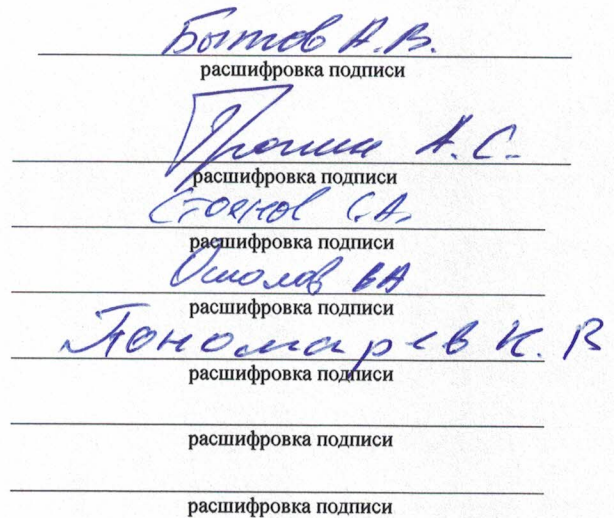 Бытов А.В.
расшифровка подписи
А.С.
расшифровка подписи
Стоянов С.А.
расшифровка подписи
расшифровка подписи
Пономарев К.В
расшифровка подписи
расшифровка подписи
расшифровка подписи